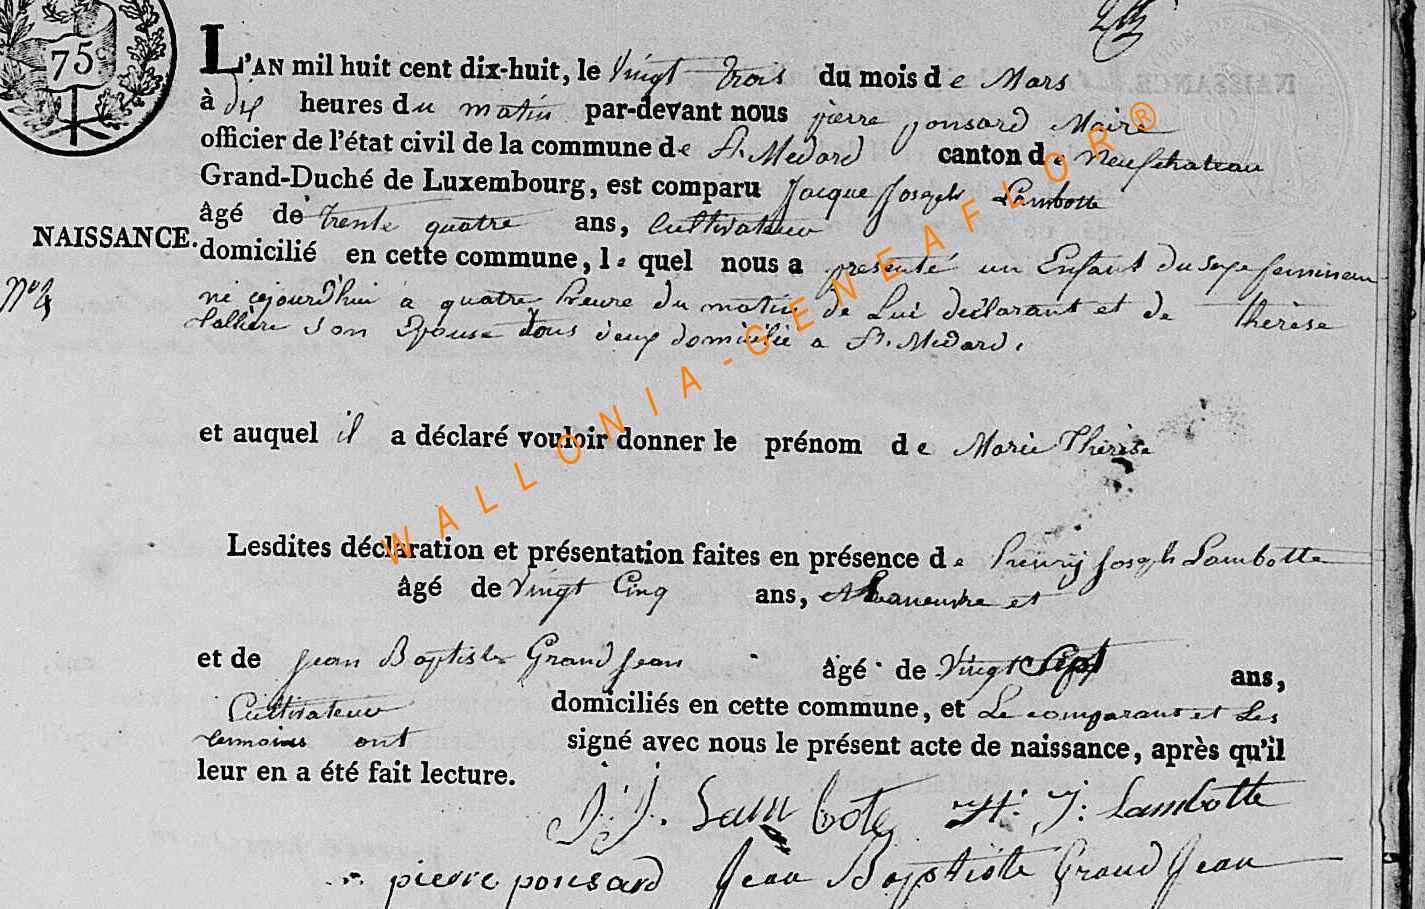 75c
L'AN mil huit cent dix-huit, le Vingt trois du mois de Mars
à dix heures du matin par-devant nous pierre ponsard Maire
officier de l'état civil de la commune de St. Medard canton de Neufchateau
Grand-Duché de Luxembourg, est comparu Jacque Joseph Lambotte
âgé de trente quatre ans, Cultivateur
NAISSANCE. domicilié en cette commune, le quel nous a presenté un Enfant du sexe feminin
né cejourd'hui a quatre heure du matin de Lui déclarant et de Thérèse
son Epouse tous deux domicilié a St. Medard.
et auquel il a déclaré vouloir donner le prénom de Marie Thérèse
Lesdites déclaration et présentation faites en présence de henry Joseph Lambotte
âgé de Vingt Cinq ans, et
et de Jean Baptiste Grand Jean âgé de Vingt Sept ans,
Cultivateur domiciliés en cette commune, et Le comparant et Les
temoins ont signé avec nous le présent acte de naissance, après qu'il
leur en a été fait lecture.
J: J. Lambote H: J: Lambotte
pierre ponsard Jean Baptiste Grand Jean
WALLONIA-GENEAFLOR®